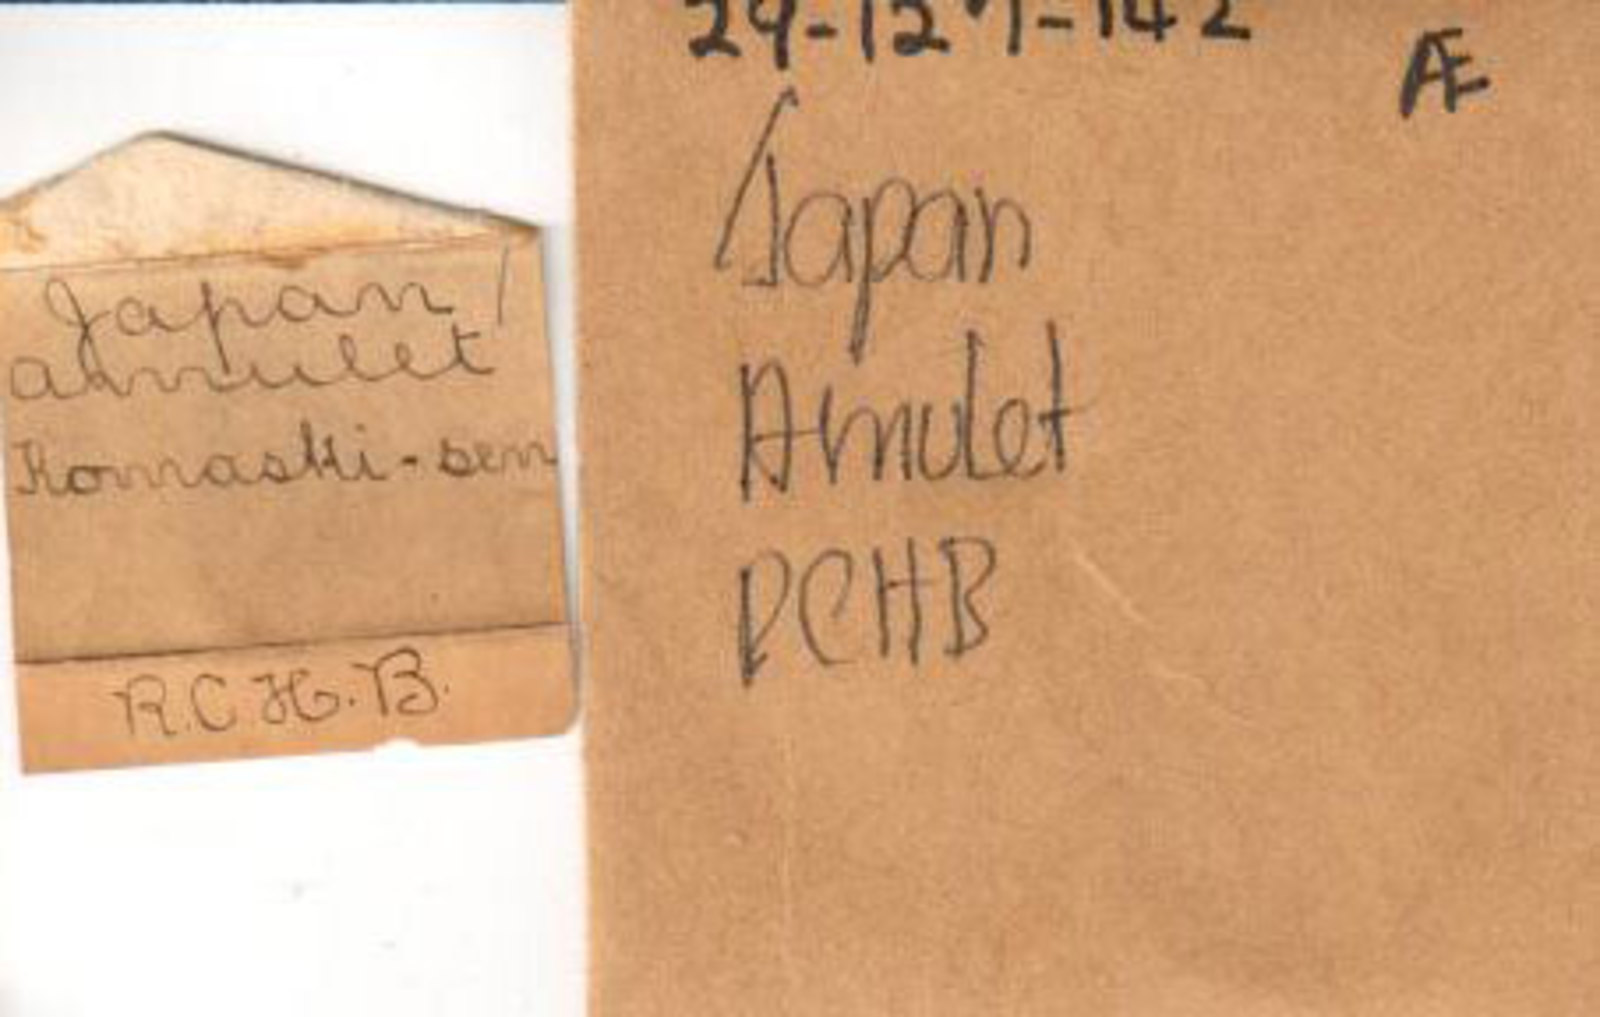 Japan /
amulet
Komaski-sen
R.C.H.B.
Æ
Japan
Amulet
RCHB